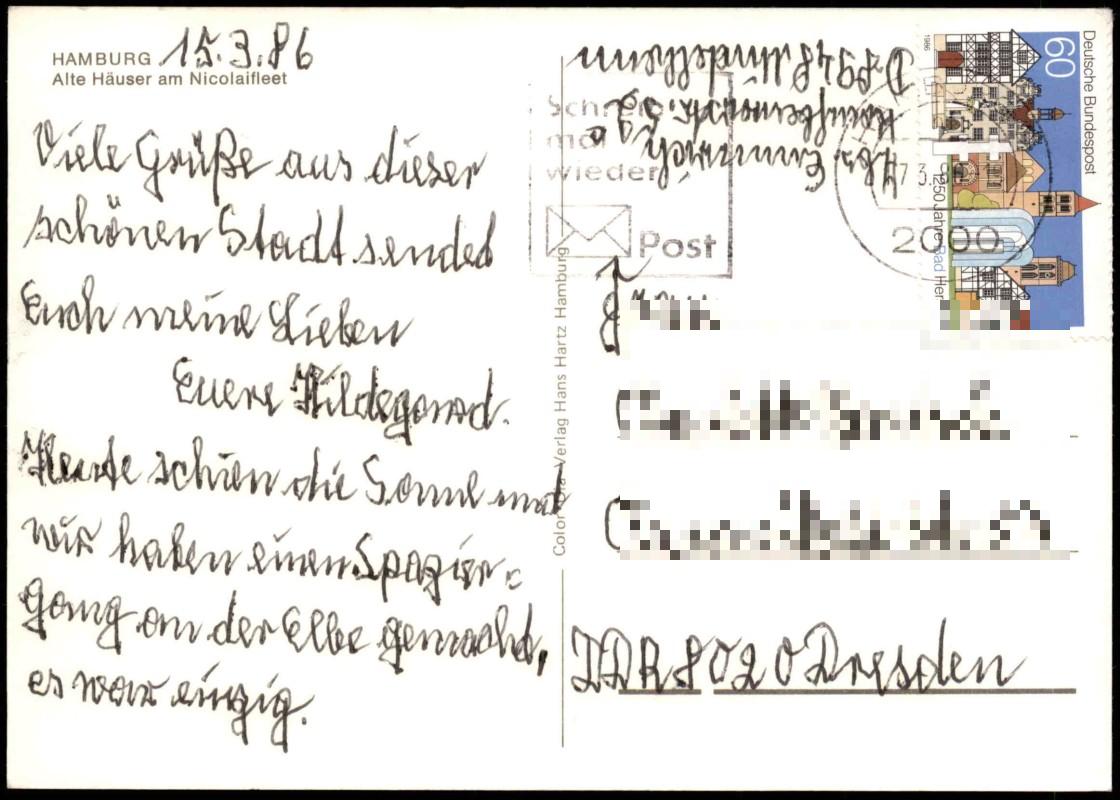 HAMBURG 15.3.86
Alte Häuser am Nicolaifleet
Viele Grüße aus dieser
schönen Stadt sendet
Euch meine Lieben
Euere Hildegard.
Heute schien die Sonne und
wir haben einen Spazier=
gang an der Elbe gemacht,
es war einzig.
Verlag Hans Hartz Hamburg
Schreib
mal
wieder
Post
Emmrich
D 8948 Mindelheim
Deutsche Bundespost
60
1986
1250 Jahre Bad Her
2000
DDR 8020 Dresden